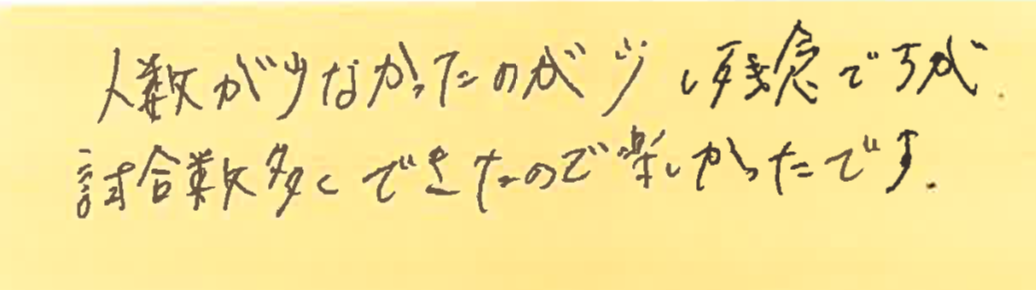 人数が少なかったのが少し残念ですが
試合数多くできたので楽しかったです.